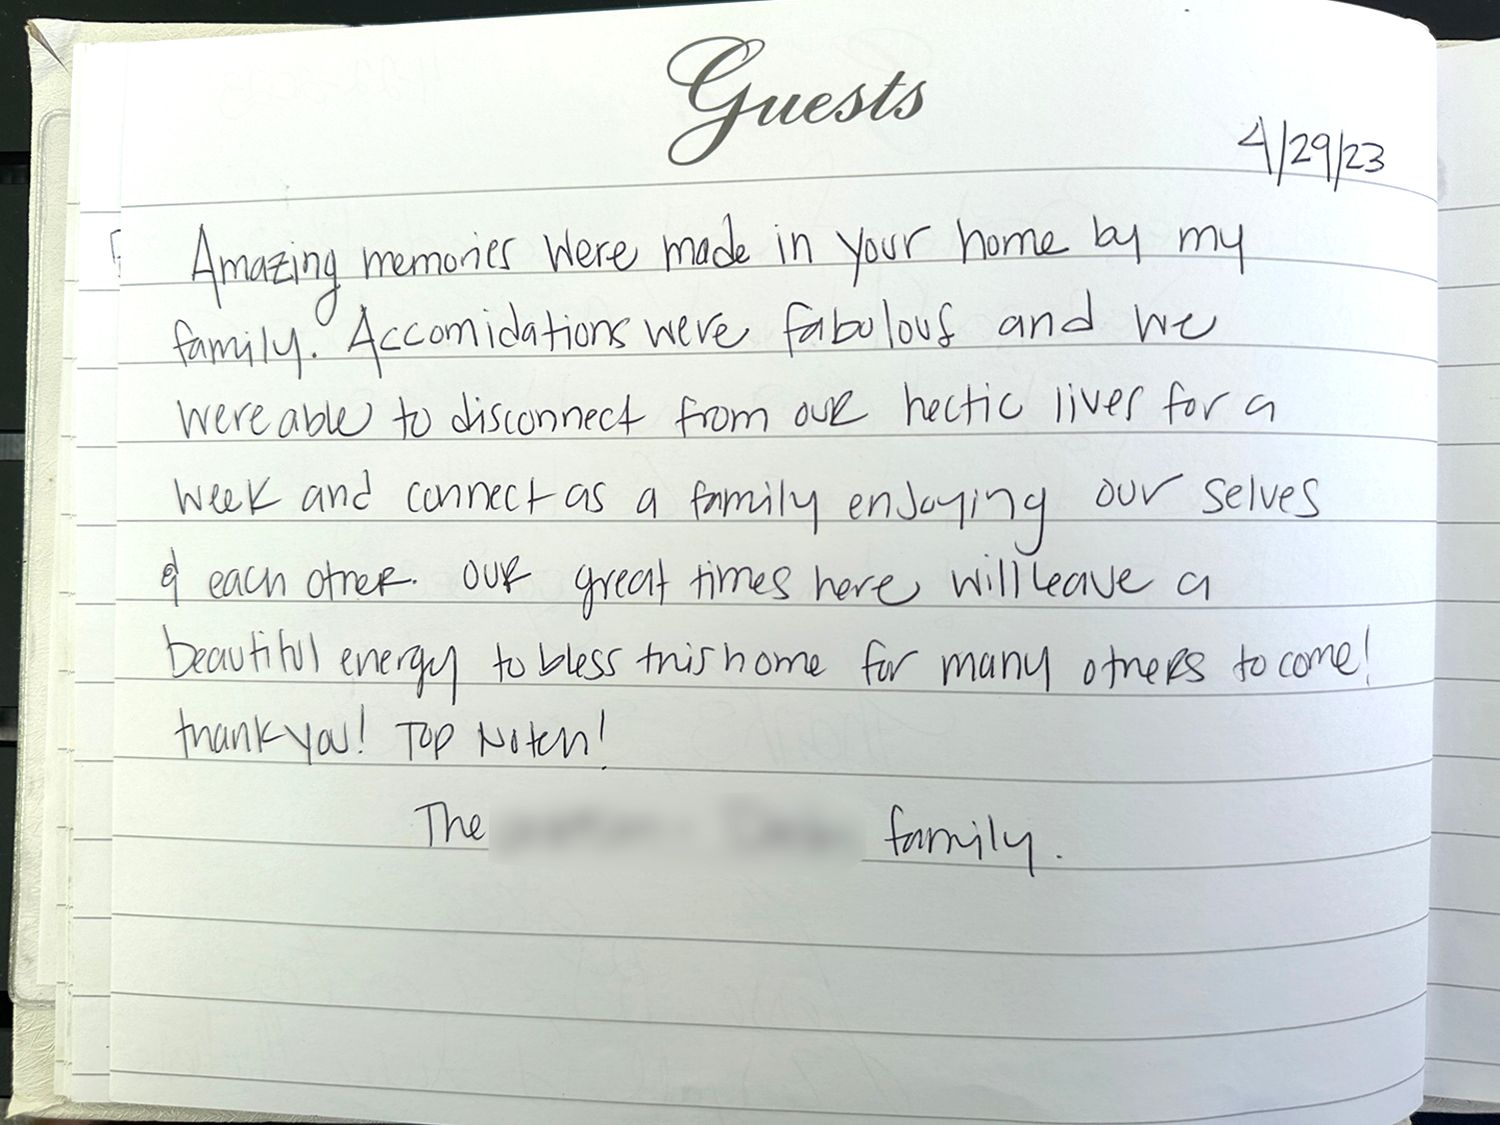 Guests
4/29/23
Amazing memories were made in your home by my
family. Accomidations were fabulous and we
were able to disconnect from our hectic lives for a
week and connect as a family enjoying our selves
& each other. Our great times here will leave a
beautiful energy to bless this home for many others to come!
thank you! Top Notch!
The family.